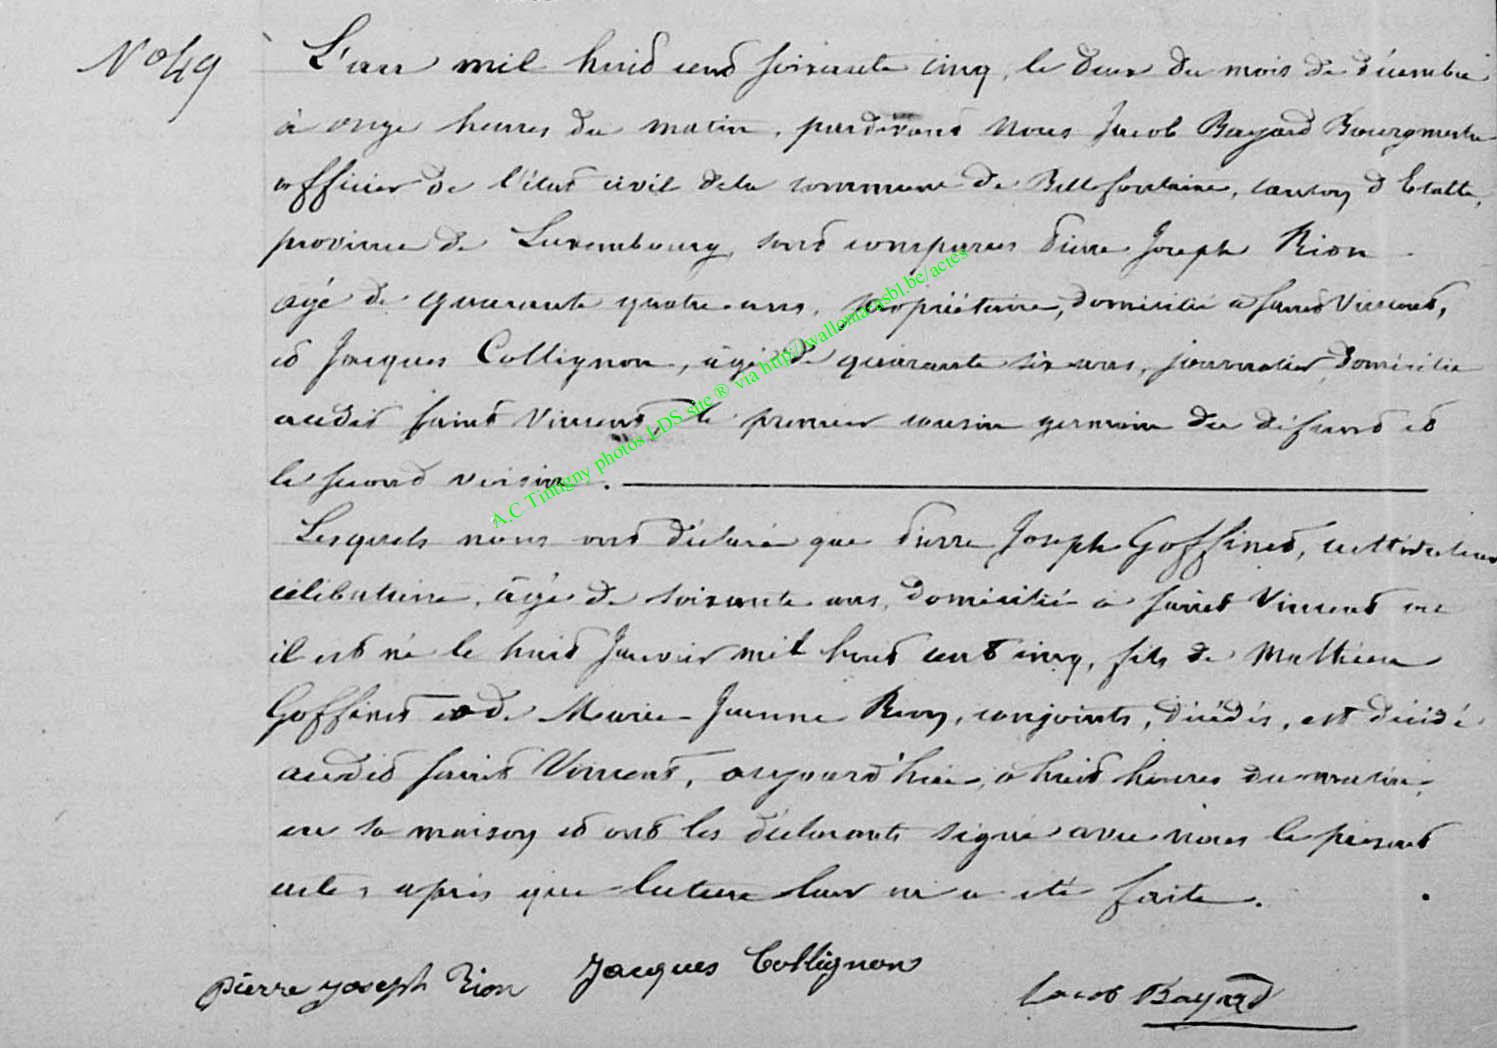 N° 49
L'an mil huit cent soixante cinq, le deux du mois de décembre
à onze heures du matin, pardevant Nous Jacob Bayard Bourgmestre
officier de l'état civil dela commune de Bellefontaine, canton d'Etalle,
province de Luxembourg, sont comparus Pierre Joseph Rion
âgé de quarante quatre ans, propriétaire, domicilié a Saint Vincent,
et Jacques Collignon, âgé de quarante six ans, journalier, domicilié
audit Saint Vincent, le premier cousin germain du défunt et
le second voisin.
Lesquels nous ont déclaré que Pierre Joseph Goffinet, cultivateur
célibataire, âgé de soixante ans, domicilié à Saint Vincent où
il est né le huit Janvier mil huit cent cinq, fils de Mathieu
Goffinet et de Marie Jeanne Rion, conjoints, décédés, est décédé
audit Saint Vincent, aujourd'hui, à huit heures du matin,
en sa maison et ont les déclarants signé avec nous le présent
acte, après que lecture leur en a été faite.
pierre joseph Rion Jacques Collignon
Jacob Bayard
A.C Tintigny photos LDS site ® via http://wallonia-asbl.be/actes